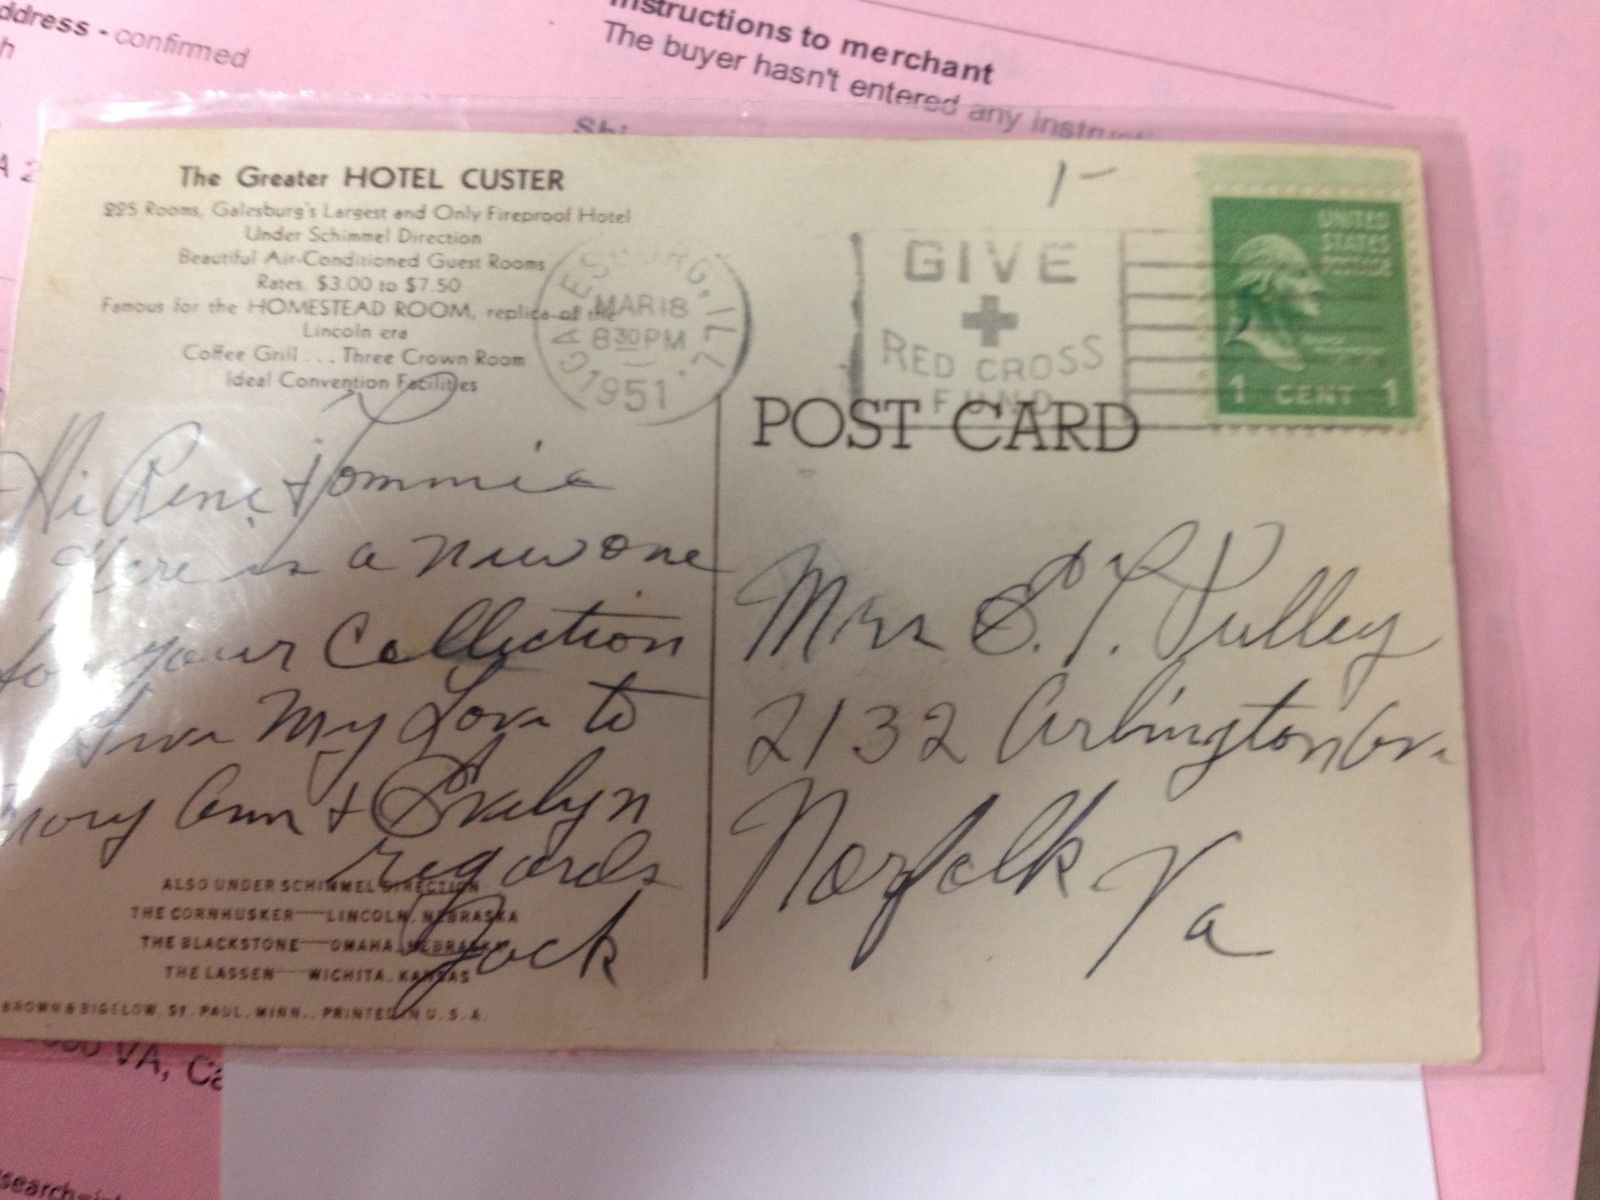 address - confirmed
h
Instructions to merchant
The buyer hasn't entered any instructi
Shi
A 2
The Greater HOTEL CUSTER
225 Rooms, Galesburg's Largest and Only Fireproof Hotel
Under Schimmel Direction
Beautiful Air-Conditioned Guest Rooms
Rates. $3.00 to $7.50
Famous for the HOMESTEAD ROOM, replica of the
Lincoln era
Coffee Grill . . . Three Crown Room
Ideal Convention Facilities
GALESBURG, ILL.
MAR 18
8 30 PM
1951
GIVE
RED CROSS
FUND
1-
UNITED
STATES
POSTAGE
1 CENT 1
POST CARD
Hi Rene & Tommie
Here is a new one
for your Collection
Give My Love to
Mary Ann & Evelyn
regards
Jack
Mrs E. T. Pulley
2132 Arlington Av.
Norfolk Va
ALSO UNDER SCHIMMEL DIRECTION
THE CORNHUSKER—LINCOLN, NEBRASKA
THE BLACKSTONE—OMAHA, NEBRASKA
THE LASSEN—WICHITA, KANSAS
BROWN & BIGELOW, ST. PAUL, MINN., PRINTED IN U.S.A.
VA, Ca
search